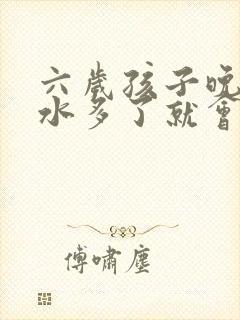 六歲孩子晚
水多了就會
傅嘯塵